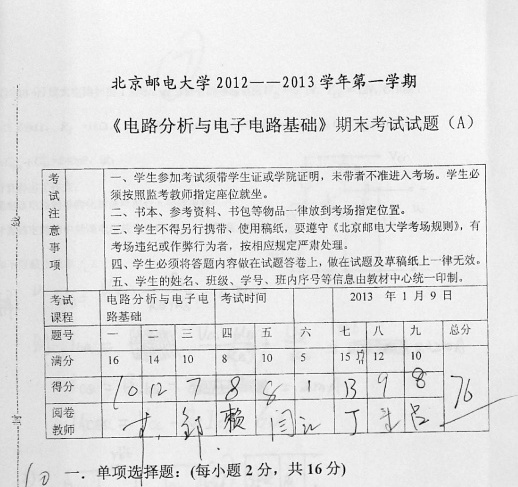 北京邮电大学2012——2013学年第一学期
《电路分析与电子电路基础》期末考试试题（A）
考试注意事项
一、学生参加考试须带学生证或学院证明，未带者不准进入考场。学生必
须按照监考教师指定座位就坐。
二、书本、参考资料、书包等物品一律放到考场指定位置。
三、学生不得另行携带、使用稿纸，要遵守《北京邮电大学考场规则》，有
考场违纪或作弊行为者，按相应规定严肃处理。
四、学生必须将答题内容做在试题答卷上，做在试题及草稿纸上一律无效。
五、学生的姓名、班级、学号、班内序号等信息由教材中心统一印制。
考试课程 电路分析与电子电路基础 考试时间 2013 年 1 月 9 日
题号 一 二 三 四 五 六 七 八 九 总分
满分 16 14 10 8 10 5 15 12 10
得分 10 12 7 8 8 1 13 9 8 76
阅卷教师 邹 赖 闫 丁 吕
10 一．单项选择题：(每小题 2 分，共 16 分)